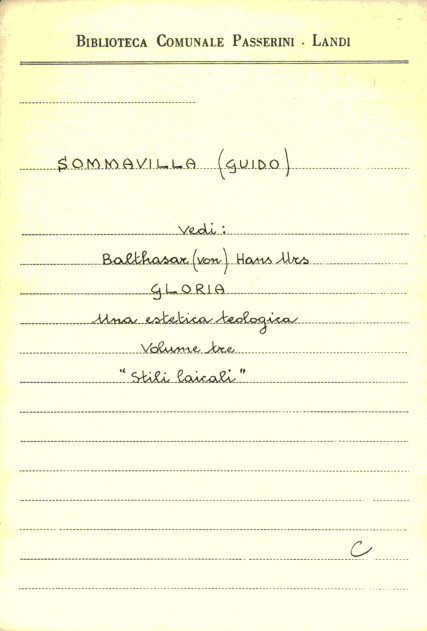 BIBLIOTECA COMUNALE PASSERINI - LANDI
SOMMAVILLA (GUIDO)
Vedi:
Balthasar (von) Hans Urs
GLORIA
Una estetica teologica
Volume tre
"Stili laicali"
C